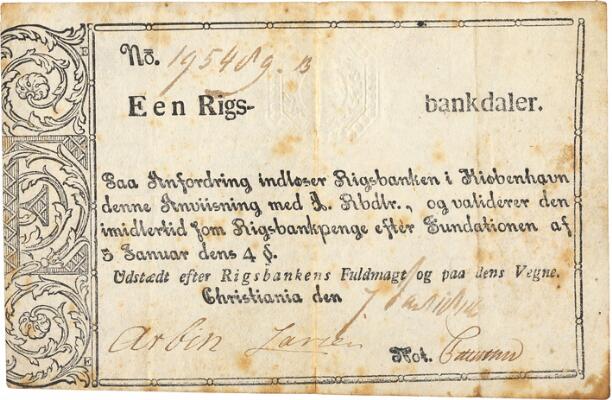 No. 195489. B
Een Rigs- bankdaler.
Paa Anfordring indløser Rigsbanken i Kiøbenhavn
denne Anviisning med 1. Rbdlr., og validerer den
imidlertid som Rigsbankpenge efter Fundationen af
5 Januar dens 4 §.
Udstædt efter Rigsbankens Fuldmagt og paa dens Vegne.
Christiania den
Arbin
Not.